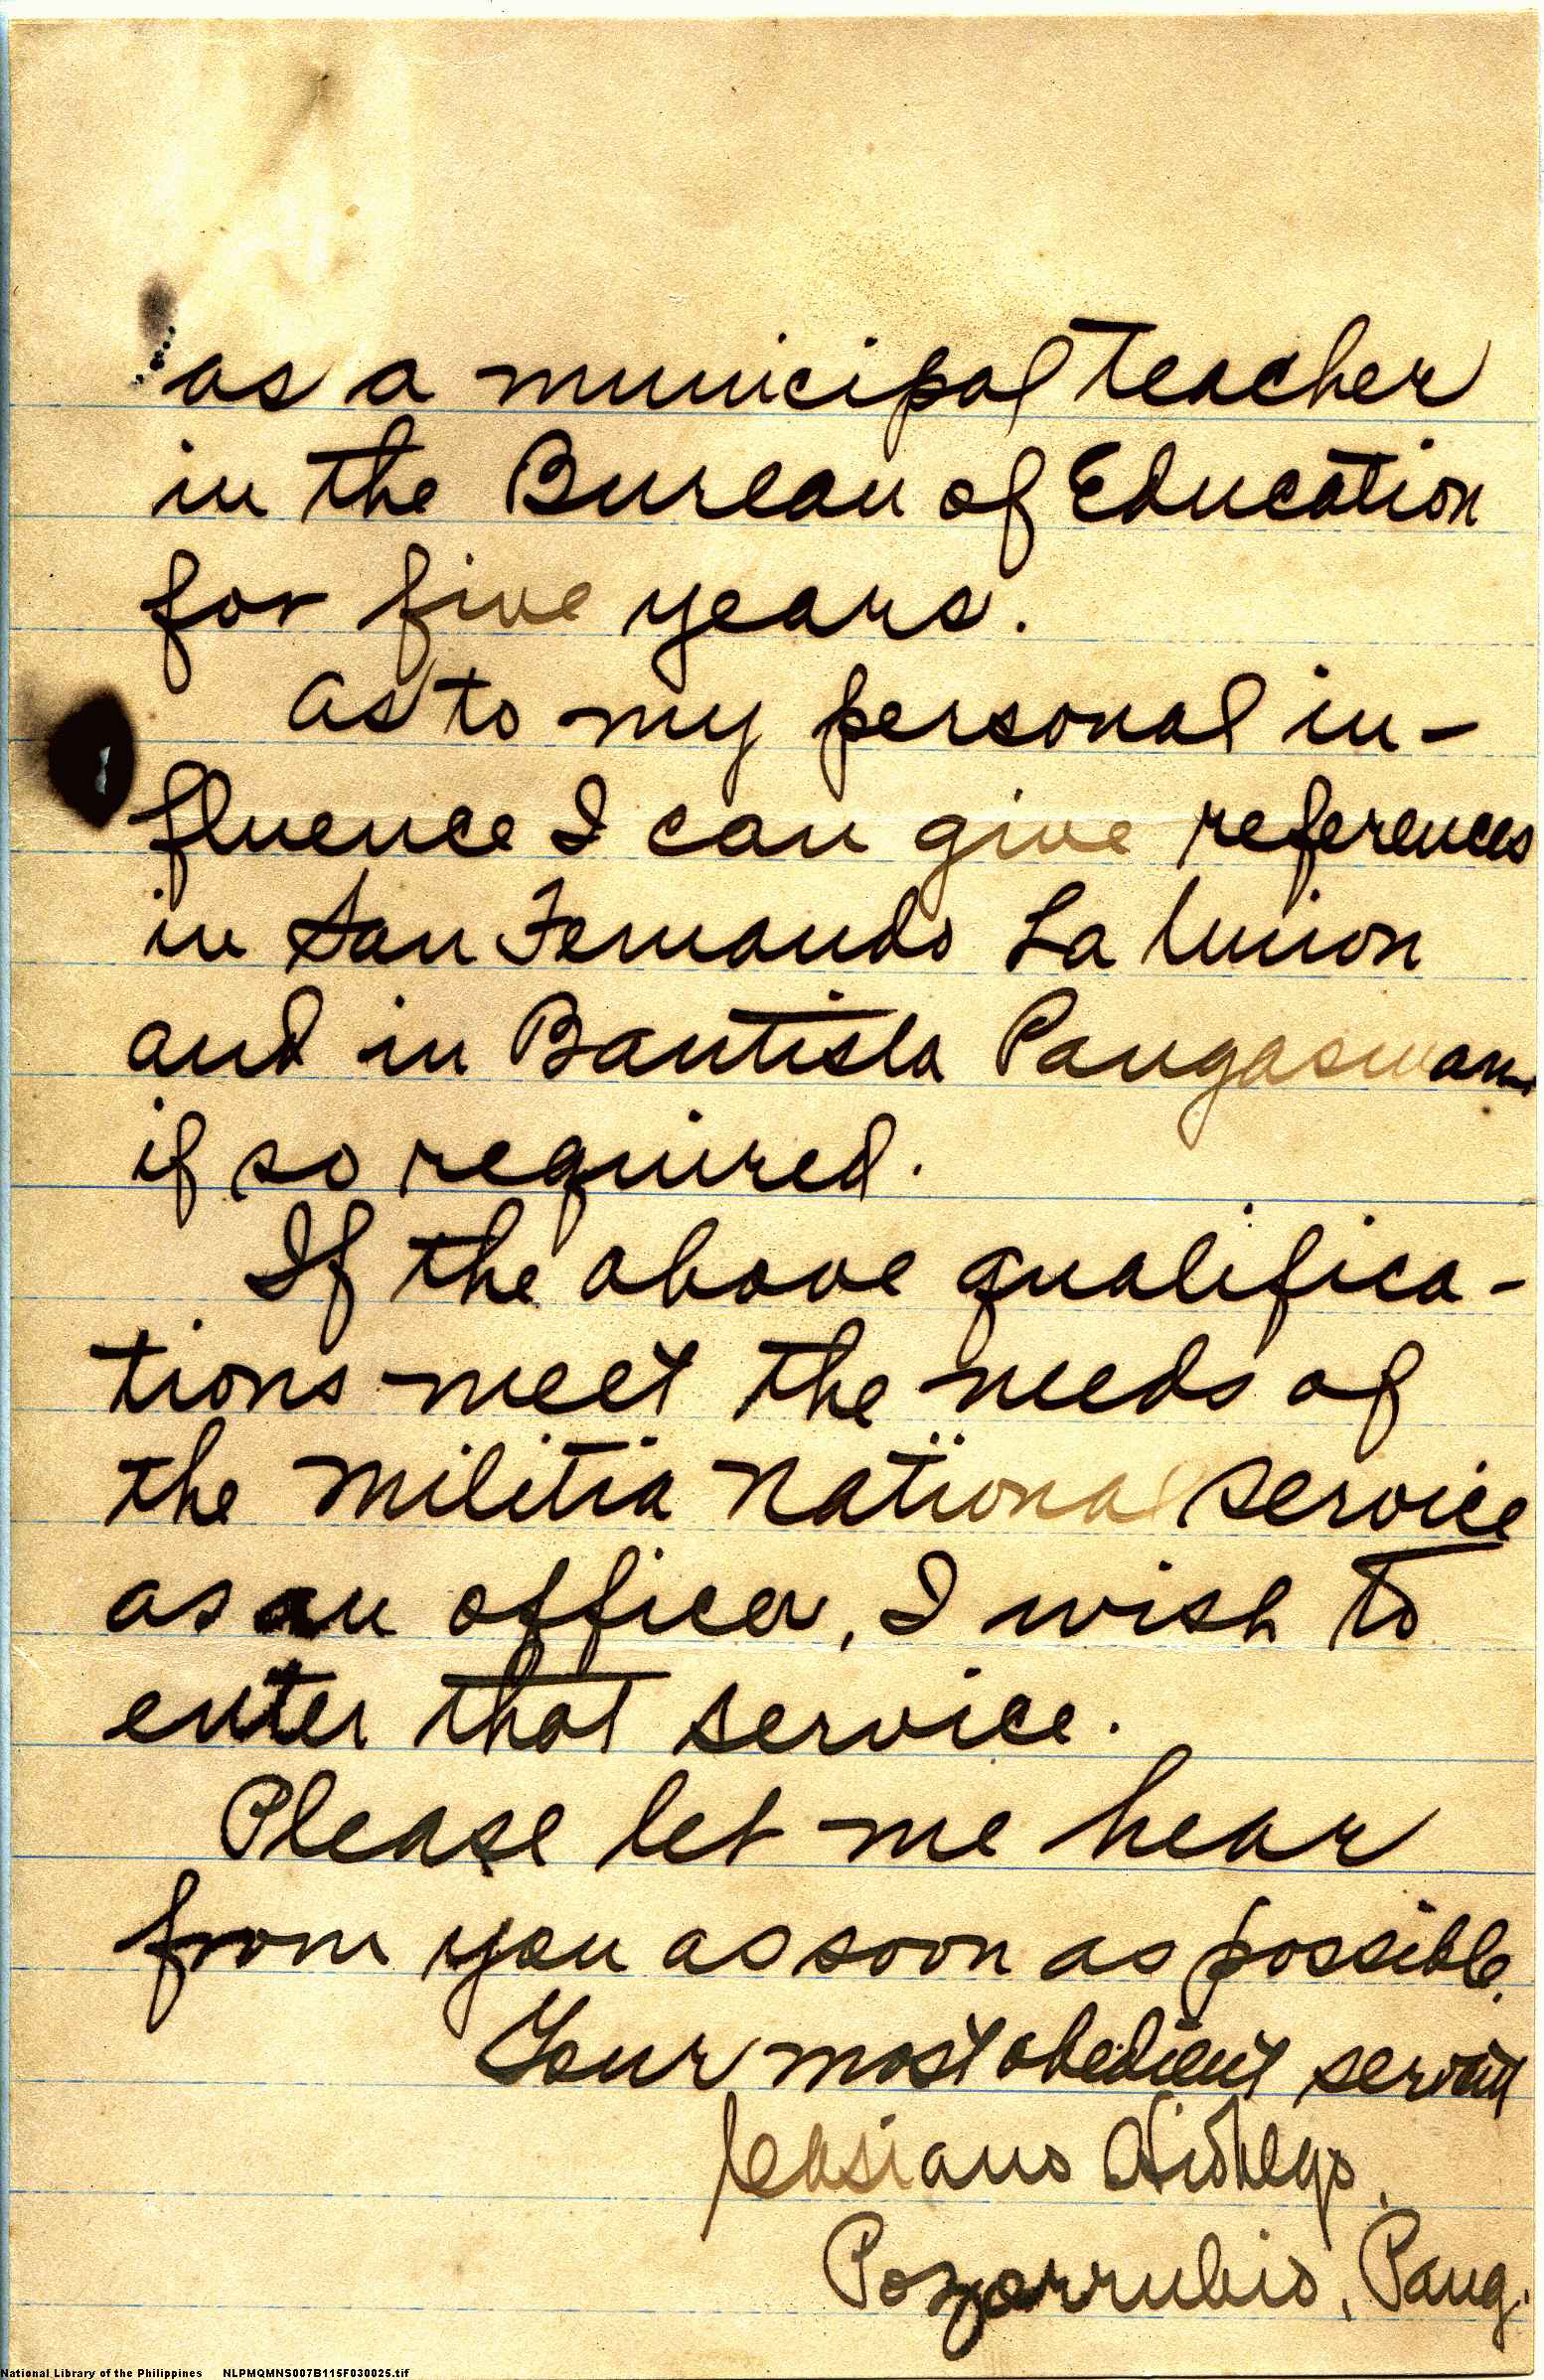 as a municipal teacher
in the Bureau of Education
for five years.
As to my personal in-
fluence I can give references
in San Fernando La Union
and in Bautista Pangasinan
if so required.
If the above qualifica-
tions meet the needs of
the militia national service
as an officer, I wish to
enter that service.
Please let me hear
from you as soon as possible.
Your most obedient servant
Casiano
Pozorrubio, Pang.
National Library of the Philippines NLPMQMNS007B115F030025.tif